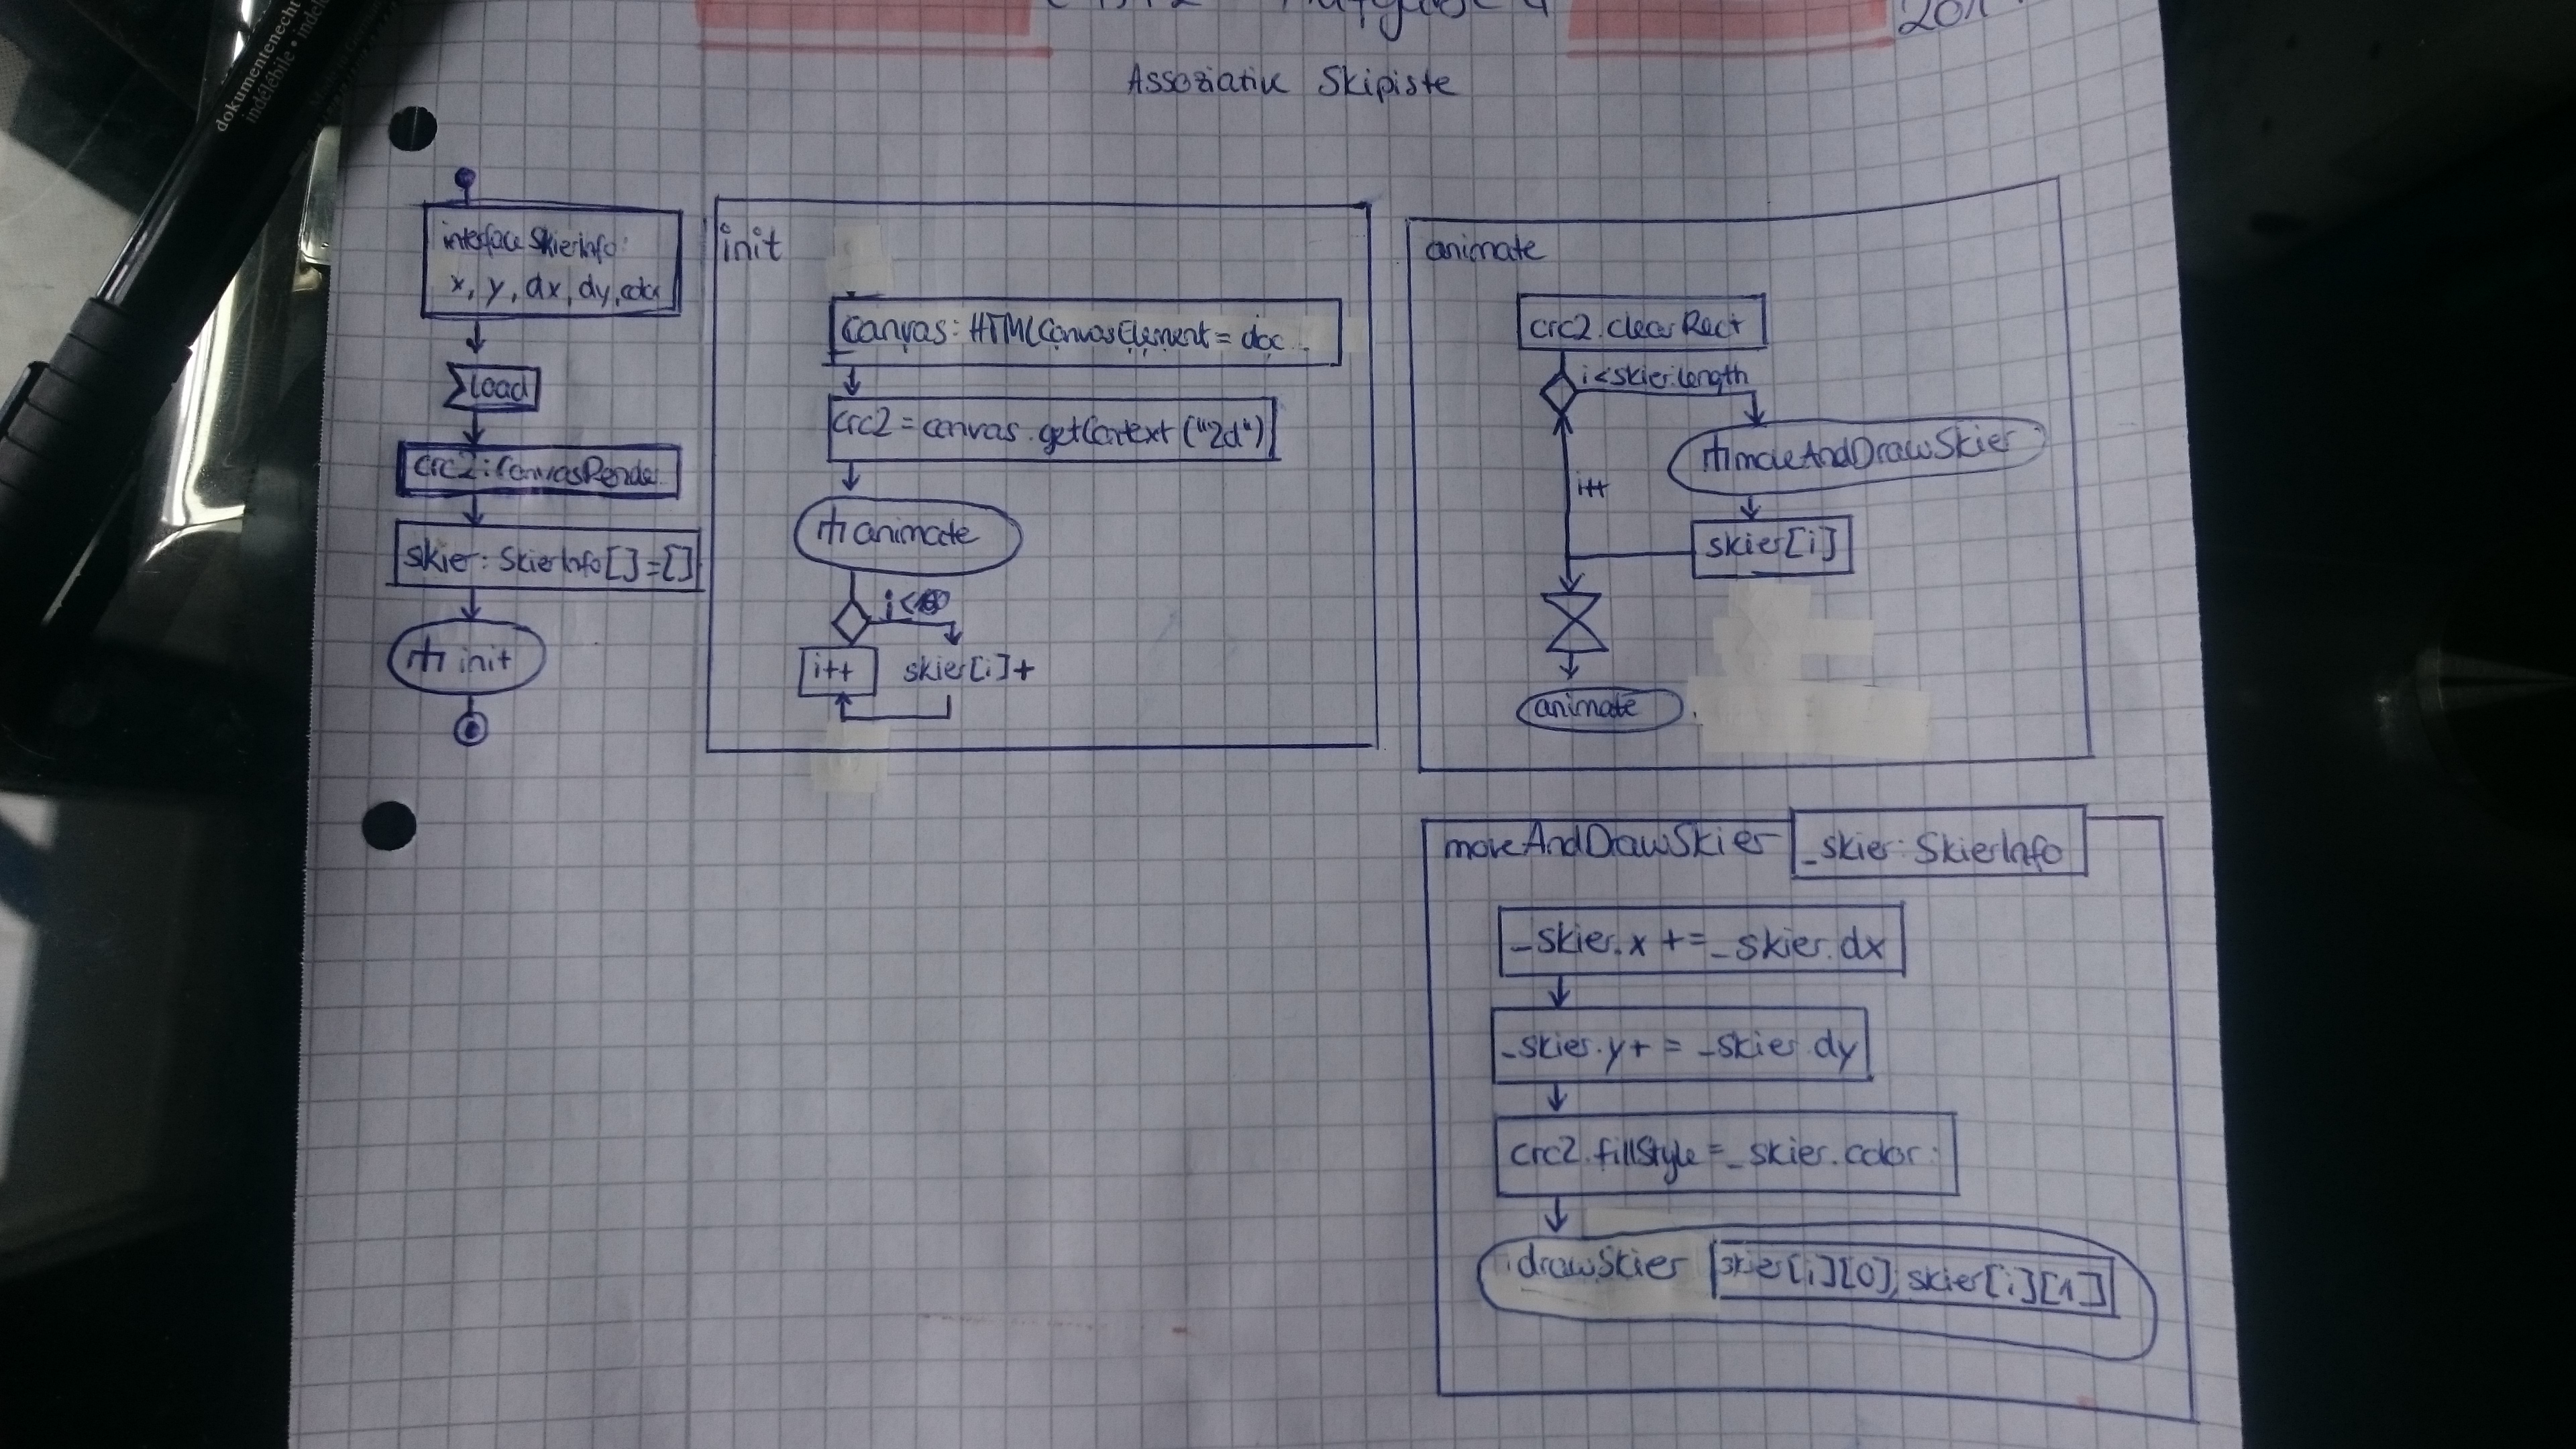 dokumentenecht
indélébile • indele
Aufgabe 4
201
Assoziativ Skipiste
interface SkierInfo:
x, y, dx, dy, color
Load
crc2: CanvasRender..
skier: SkierInfo[]=[]
init
init
canvas: HTMLCanvasElement = doc...
crc2 = canvas.getContext("2d")
animate
i<
i++
skier[i]+
animate
crc2.clearRect
i<skier.length
moveAndDrawSkier
i++
skier[i]
animate
moveAndDrawSkier
_skier: SkierInfo
_skier.x += _skier.dx
_skier.y+ = _skier.dy
crc2.fillStyle = _skier.color;
drawSkier
skier[i][0], skier[i][1]